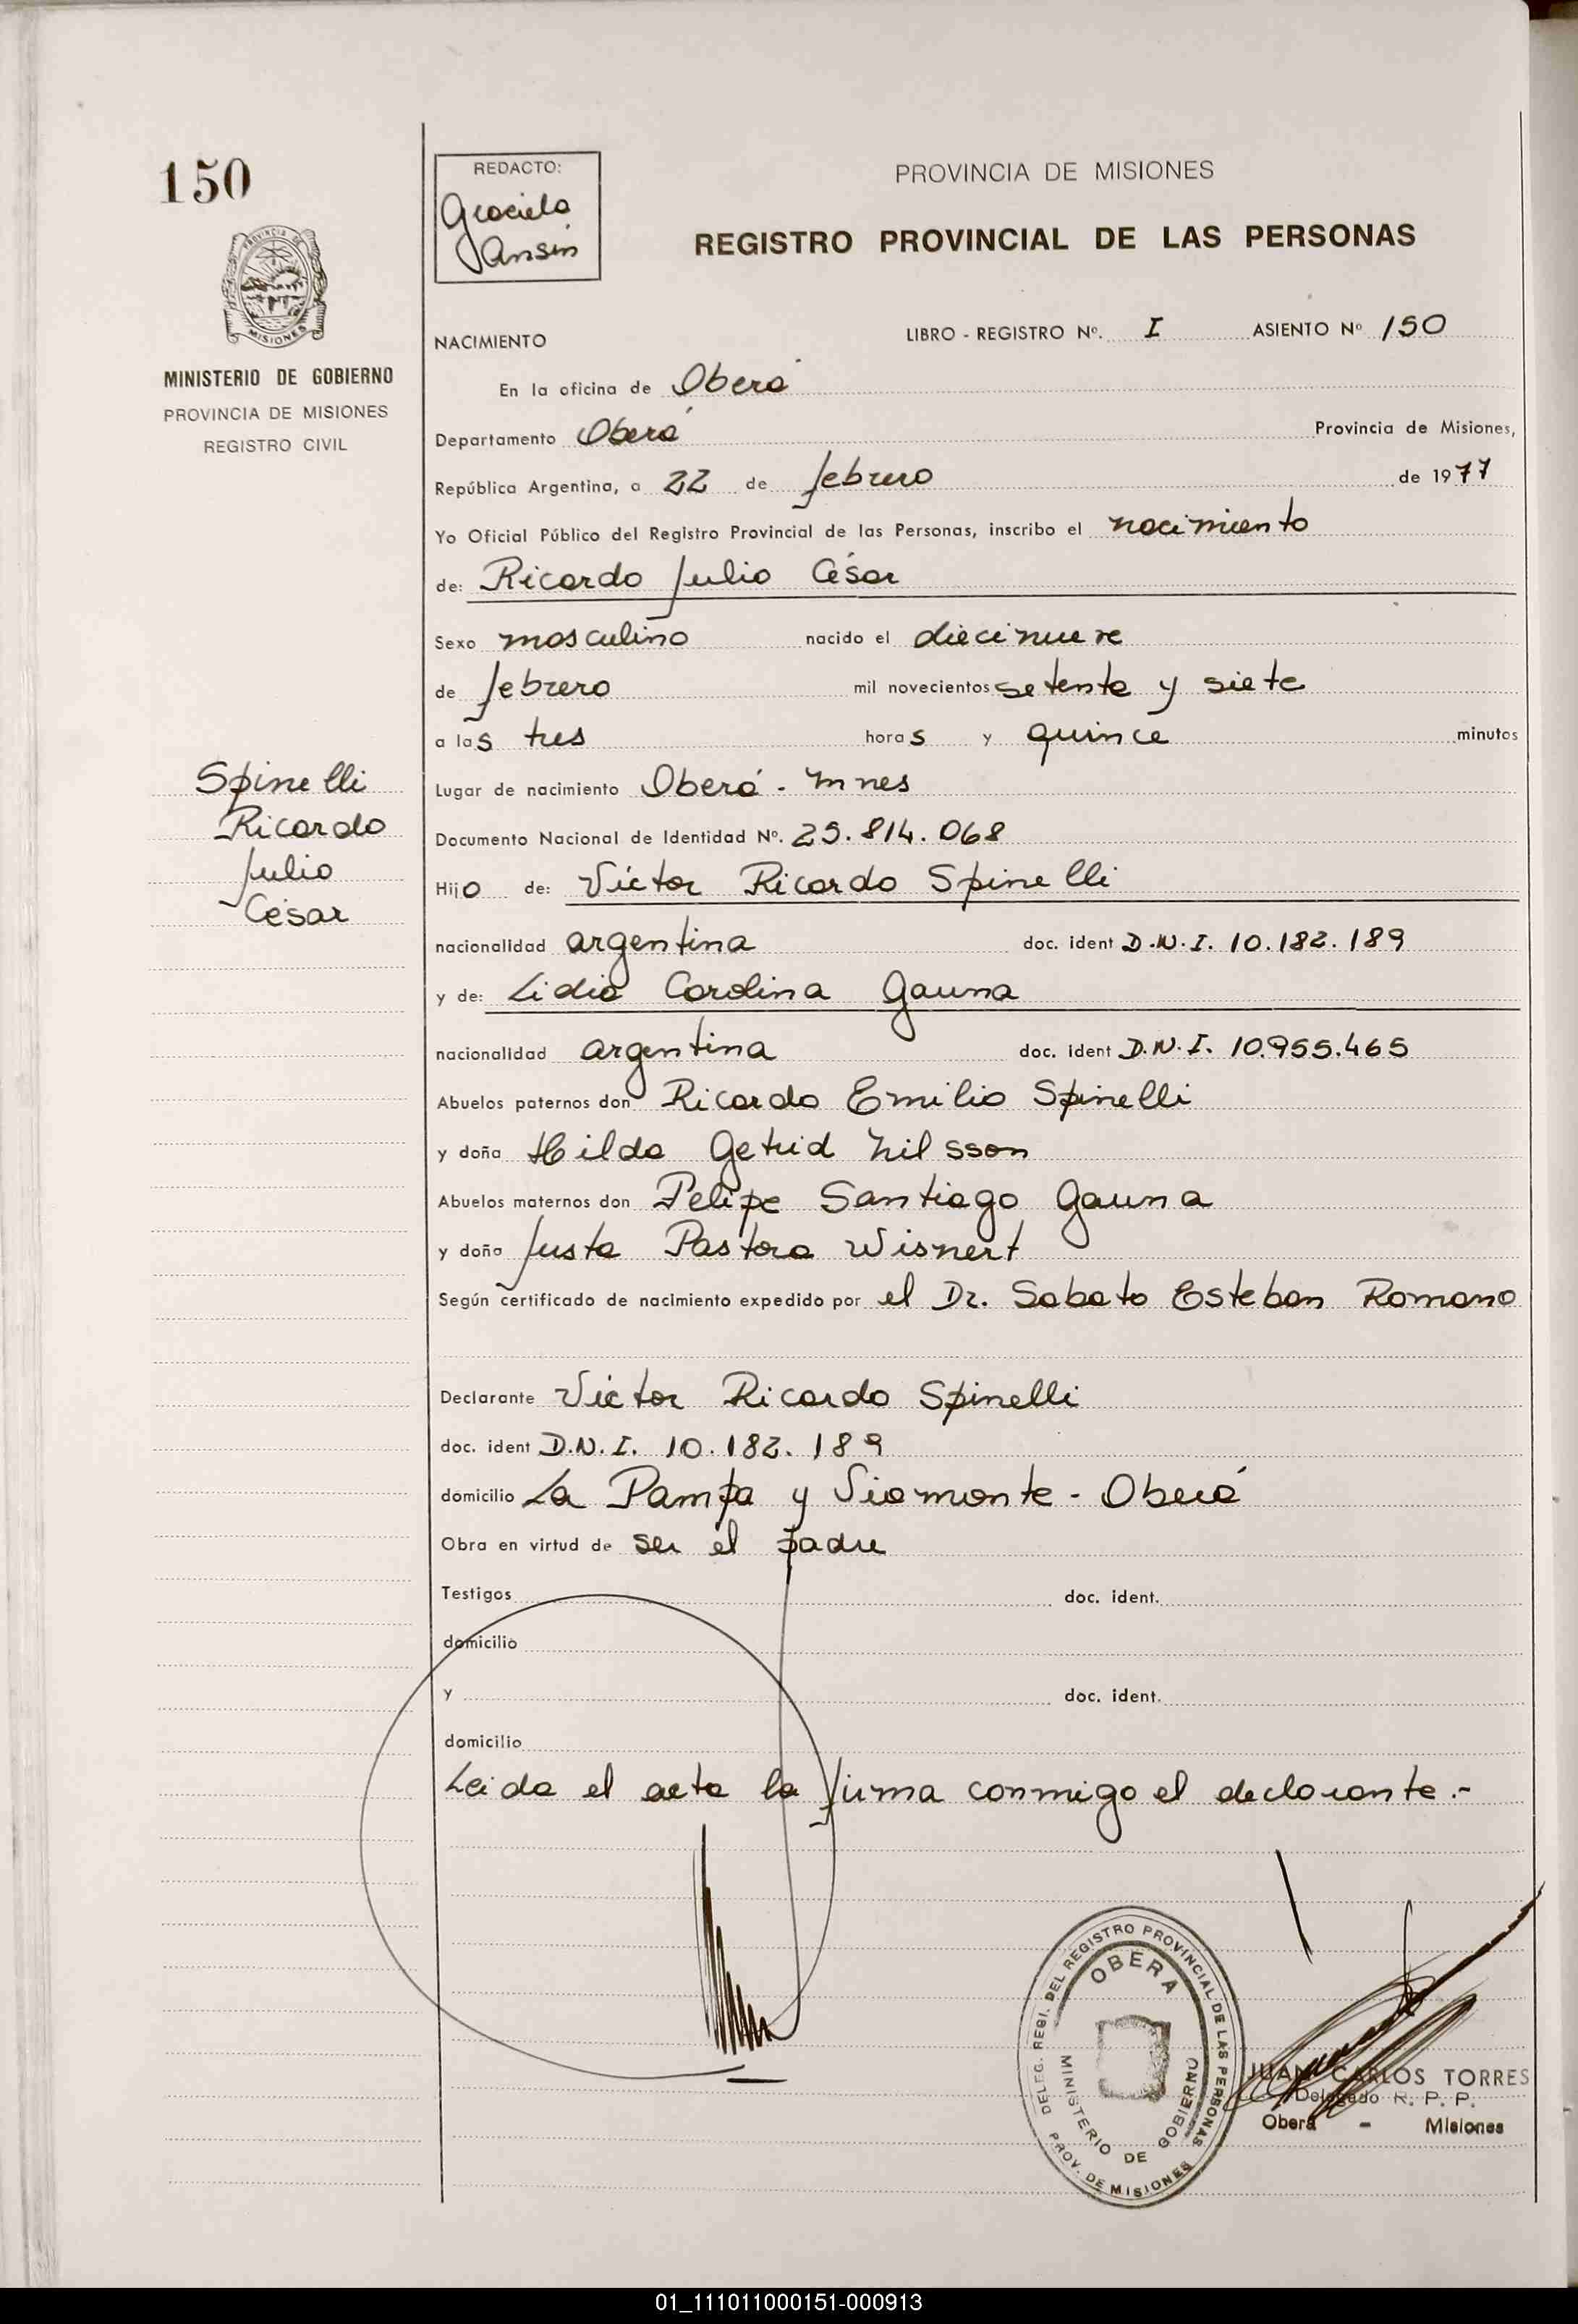 150
PROVINCIA DE
MISIONES
MINISTERIO DE GOBIERNO
PROVINCIA DE MISIONES
REGISTRO CIVIL
Spinelli
Ricardo
Julio
César
REDACTO:
Graciela
PROVINCIA DE MISIONES
REGISTRO PROVINCIAL DE LAS PERSONAS
NACIMIENTO LIBRO - REGISTRO Nº. I ASIENTO Nº 150
En la oficina de Oberá
Departamento Oberá Provincia de Misiones,
República Argentina, a 22 de febrero de 1977
Yo Oficial Público del Registro Provincial de las Personas, inscribo el nacimiento
de: Ricardo Julio César
Sexo masculino nacido el diecinueve
de febrero mil novecientos setenta y siete
a las tres horas y quince minutos
Lugar de nacimiento Oberá - Mnes
Documento Nacional de Identidad Nº. 25.814.068
Hijo de: Víctor Ricardo Spinelli
nacionalidad argentina doc. ident D.N.I. 10.182.189
y de: Lidia Carolina Gauna
nacionalidad argentina doc. ident D.N.I. 10.955.465
Abuelos paternos don Ricardo Emilio Spinelli
y doña Hilda Getrid Nilsson
Abuelos maternos don Felipe Santiago Gauna
y doña Justa Pastora Wisnert
Según certificado de nacimiento expedido por el Dr. Sabato Esteban Romano
Declarante Víctor Ricardo Spinelli
doc. ident D.N.I. 10.182.189
domicilio La Pampa y Viamonte - Oberá
Obra en virtud de ser el padre
Testigos doc. ident.
domicilio
y doc. ident.
domicilio
Leida el acta la firma conmigo el declarante.-
DELEG. REGI. DEL REGISTRO PROVINCIAL DE LAS PERSONAS
OBERA
MINISTERIO DE GOBIERNO
PROV. DE MISIONES
JUAN CARLOS TORRES
Delegado R. P. P.
Oberá - Misiones
01_111011000151-000913